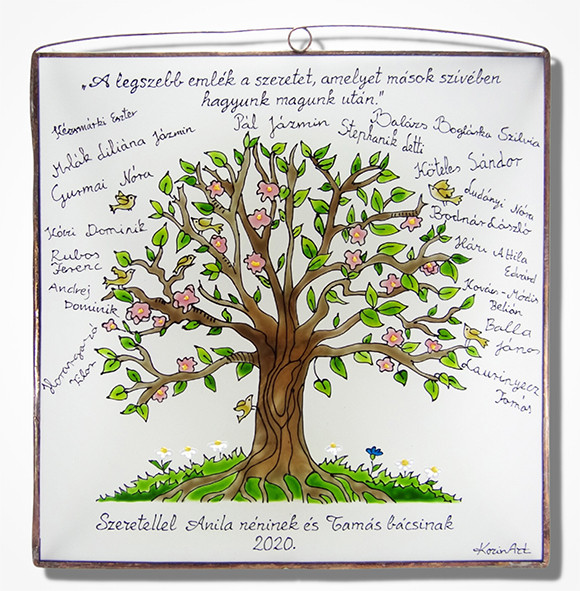 „A legszebb emlék a szeretet, amelyet mások szívében
hagyunk magunk után."
Késmárki Eszter
Mslák Liliána Jázmin
Gurmai Nóra
Kövi Dominik
Rubos
Ferenc
Andrej
Dominik
Pál Jázmin
Stephanik Letti
Balázs Boglárka Szilvia
Köteles Sándor
Ludányi Nóra
Bodnár László
Háru Attila
Edvárd
Kovács-Modis
Balla
János
Laurinyecz
Tamás
Szeretettel Anila néninek és Tamás bácsinak
2020.
KorinArt